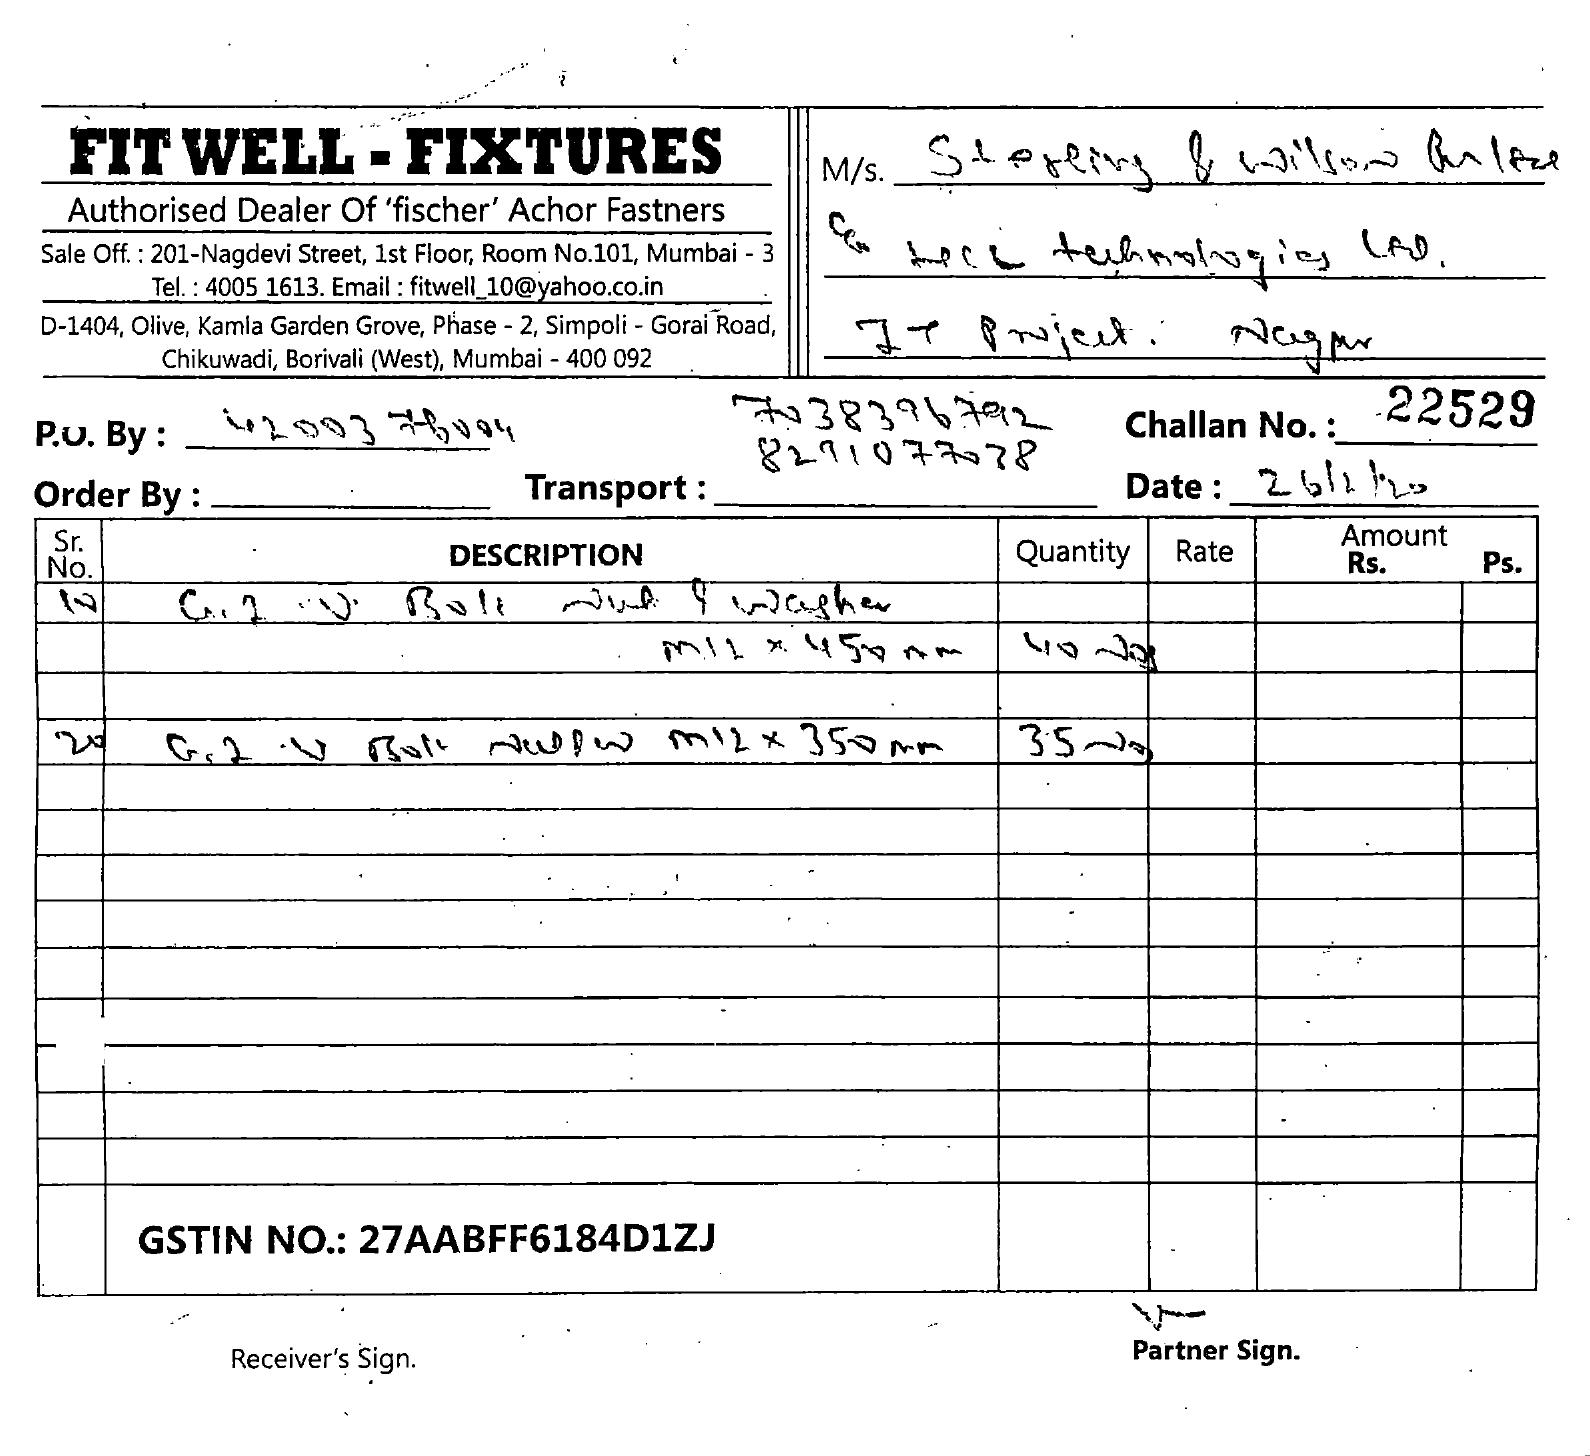 FIT WELL - FIXTURES
Authorised Dealer Of 'fischer' Achor Fastners
Sale Off. : 201-Nagdevi Street, 1st Floor, Room No.101, Mumbai - 3
Tel. : 4005 1613. Email : fitwell_10@yahoo.co.in
D-1404, Olive, Kamla Garden Grove, Phase - 2, Simpoli - Gorai Road,
Chikuwadi, Borivali (West), Mumbai - 400 092
M/s. Sterling & Wilson
technologies Ltd.
IT Project. Nagpur
P.O. By : 4200376004
7038396792
8291077038
Challan No. : 22529
Order By :
Transport :
Date : 26/2/20
Sr. No. DESCRIPTION Quantity Rate Amount Rs. Ps.
10 G.I. U Bolt Nut & Washer
M12 x 450 mm 40 Nos
20 G.I. U Bolt M12 x 350 mm 35 Nos
GSTIN NO.: 27AABFF6184D1ZJ
Receiver's Sign.
Partner Sign.